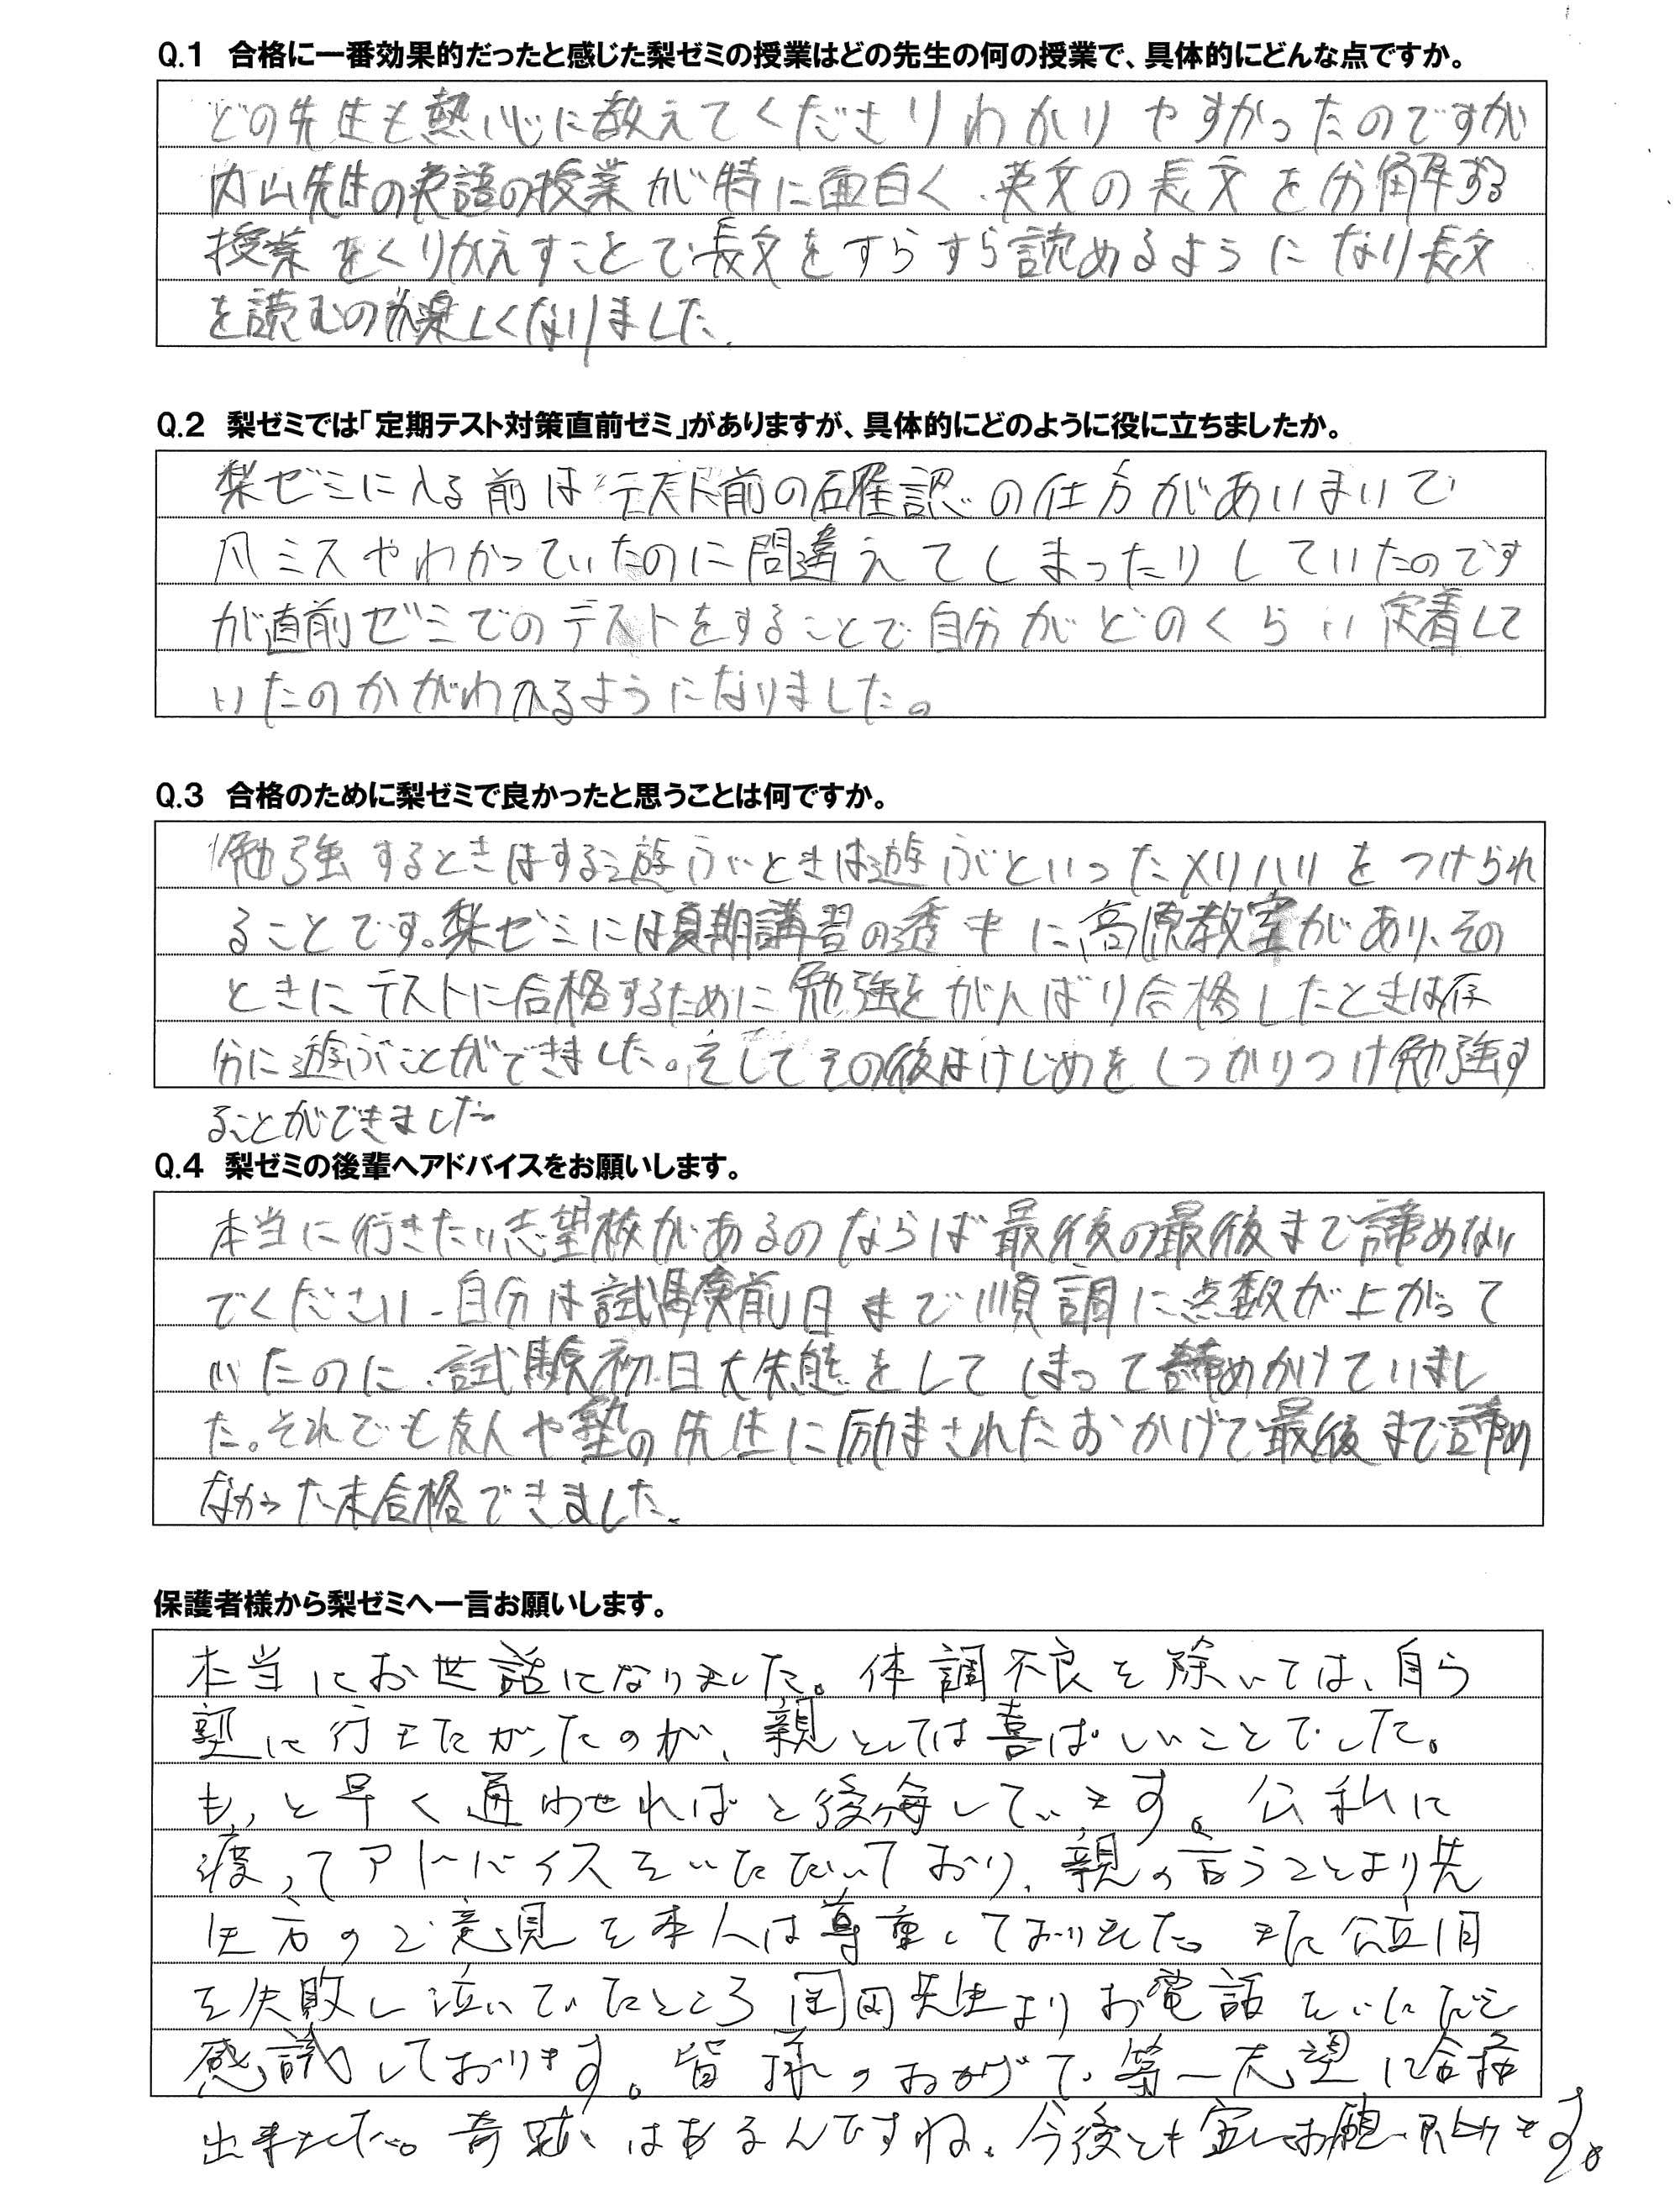 Q.1 合格に一番効果的だったと感じた梨ゼミの授業はどの先生の何の授業で、具体的にどんな点ですか。
どの先生も熱心に教えてくださりわかりやすかったのですが
内山先生の英語の授業が特に面白く、英文の長文を分解する
授業をくりかえすことで長文をすらすら読めるようになり長文
を読むのが楽しくなりました。
Q.2 梨ゼミでは「定期テスト対策直前ゼミ」がありますが、具体的にどのように役に立ちましたか。
梨ゼミに入る前はテスト前の確認の仕方があいまいで
凡ミスやわかっていたのに間違えてしまったりしていたのです
が直前ゼミでのテストをすることで自分がどのくらい定着して
いたのかがわかるようになりました。
Q.3 合格のために梨ゼミで良かったと思うことは何ですか。
勉強するときはする遊ぶときは遊ぶといったメリハリをつけられ
ることです。梨ゼミには夏期講習の途中に高原教室があり、その
ときにテストに合格するために勉強をがんばり合格したときは存
分に遊ぶことができました。そしてその後はけじめをしっかりつけ勉強す
ることができました
Q.4 梨ゼミの後輩へアドバイスをお願いします。
本当に行きたい志望校があるのならば最後の最後まで諦めない
でください。自分は試験前日まで順調に点数が上がって
いたのに、試験初日大失態をしてしまって諦めかけていまし
た。それでも友人や塾の先生に励まされたおかげで最後まで諦め
なかった末合格できました。
保護者様から梨ゼミへ一言お願いします。
本当にお世話になりました。体調不良を除いては、自ら
塾に行きたがったのが、親としては喜ばしいことでした。
もっと早く通わせればと後悔しています。公私に
渡ってアドバイスをいただいており、親の言うことより先
生方のご意見を本人は尊重しておりました。また公立1日目
を失敗し泣いていたところ 先生よりお電話をいただき
感謝しております。皆様のおかげで第一志望に合格
出来ました。奇跡はあるんですね。今後とも宜しくお願い致します。